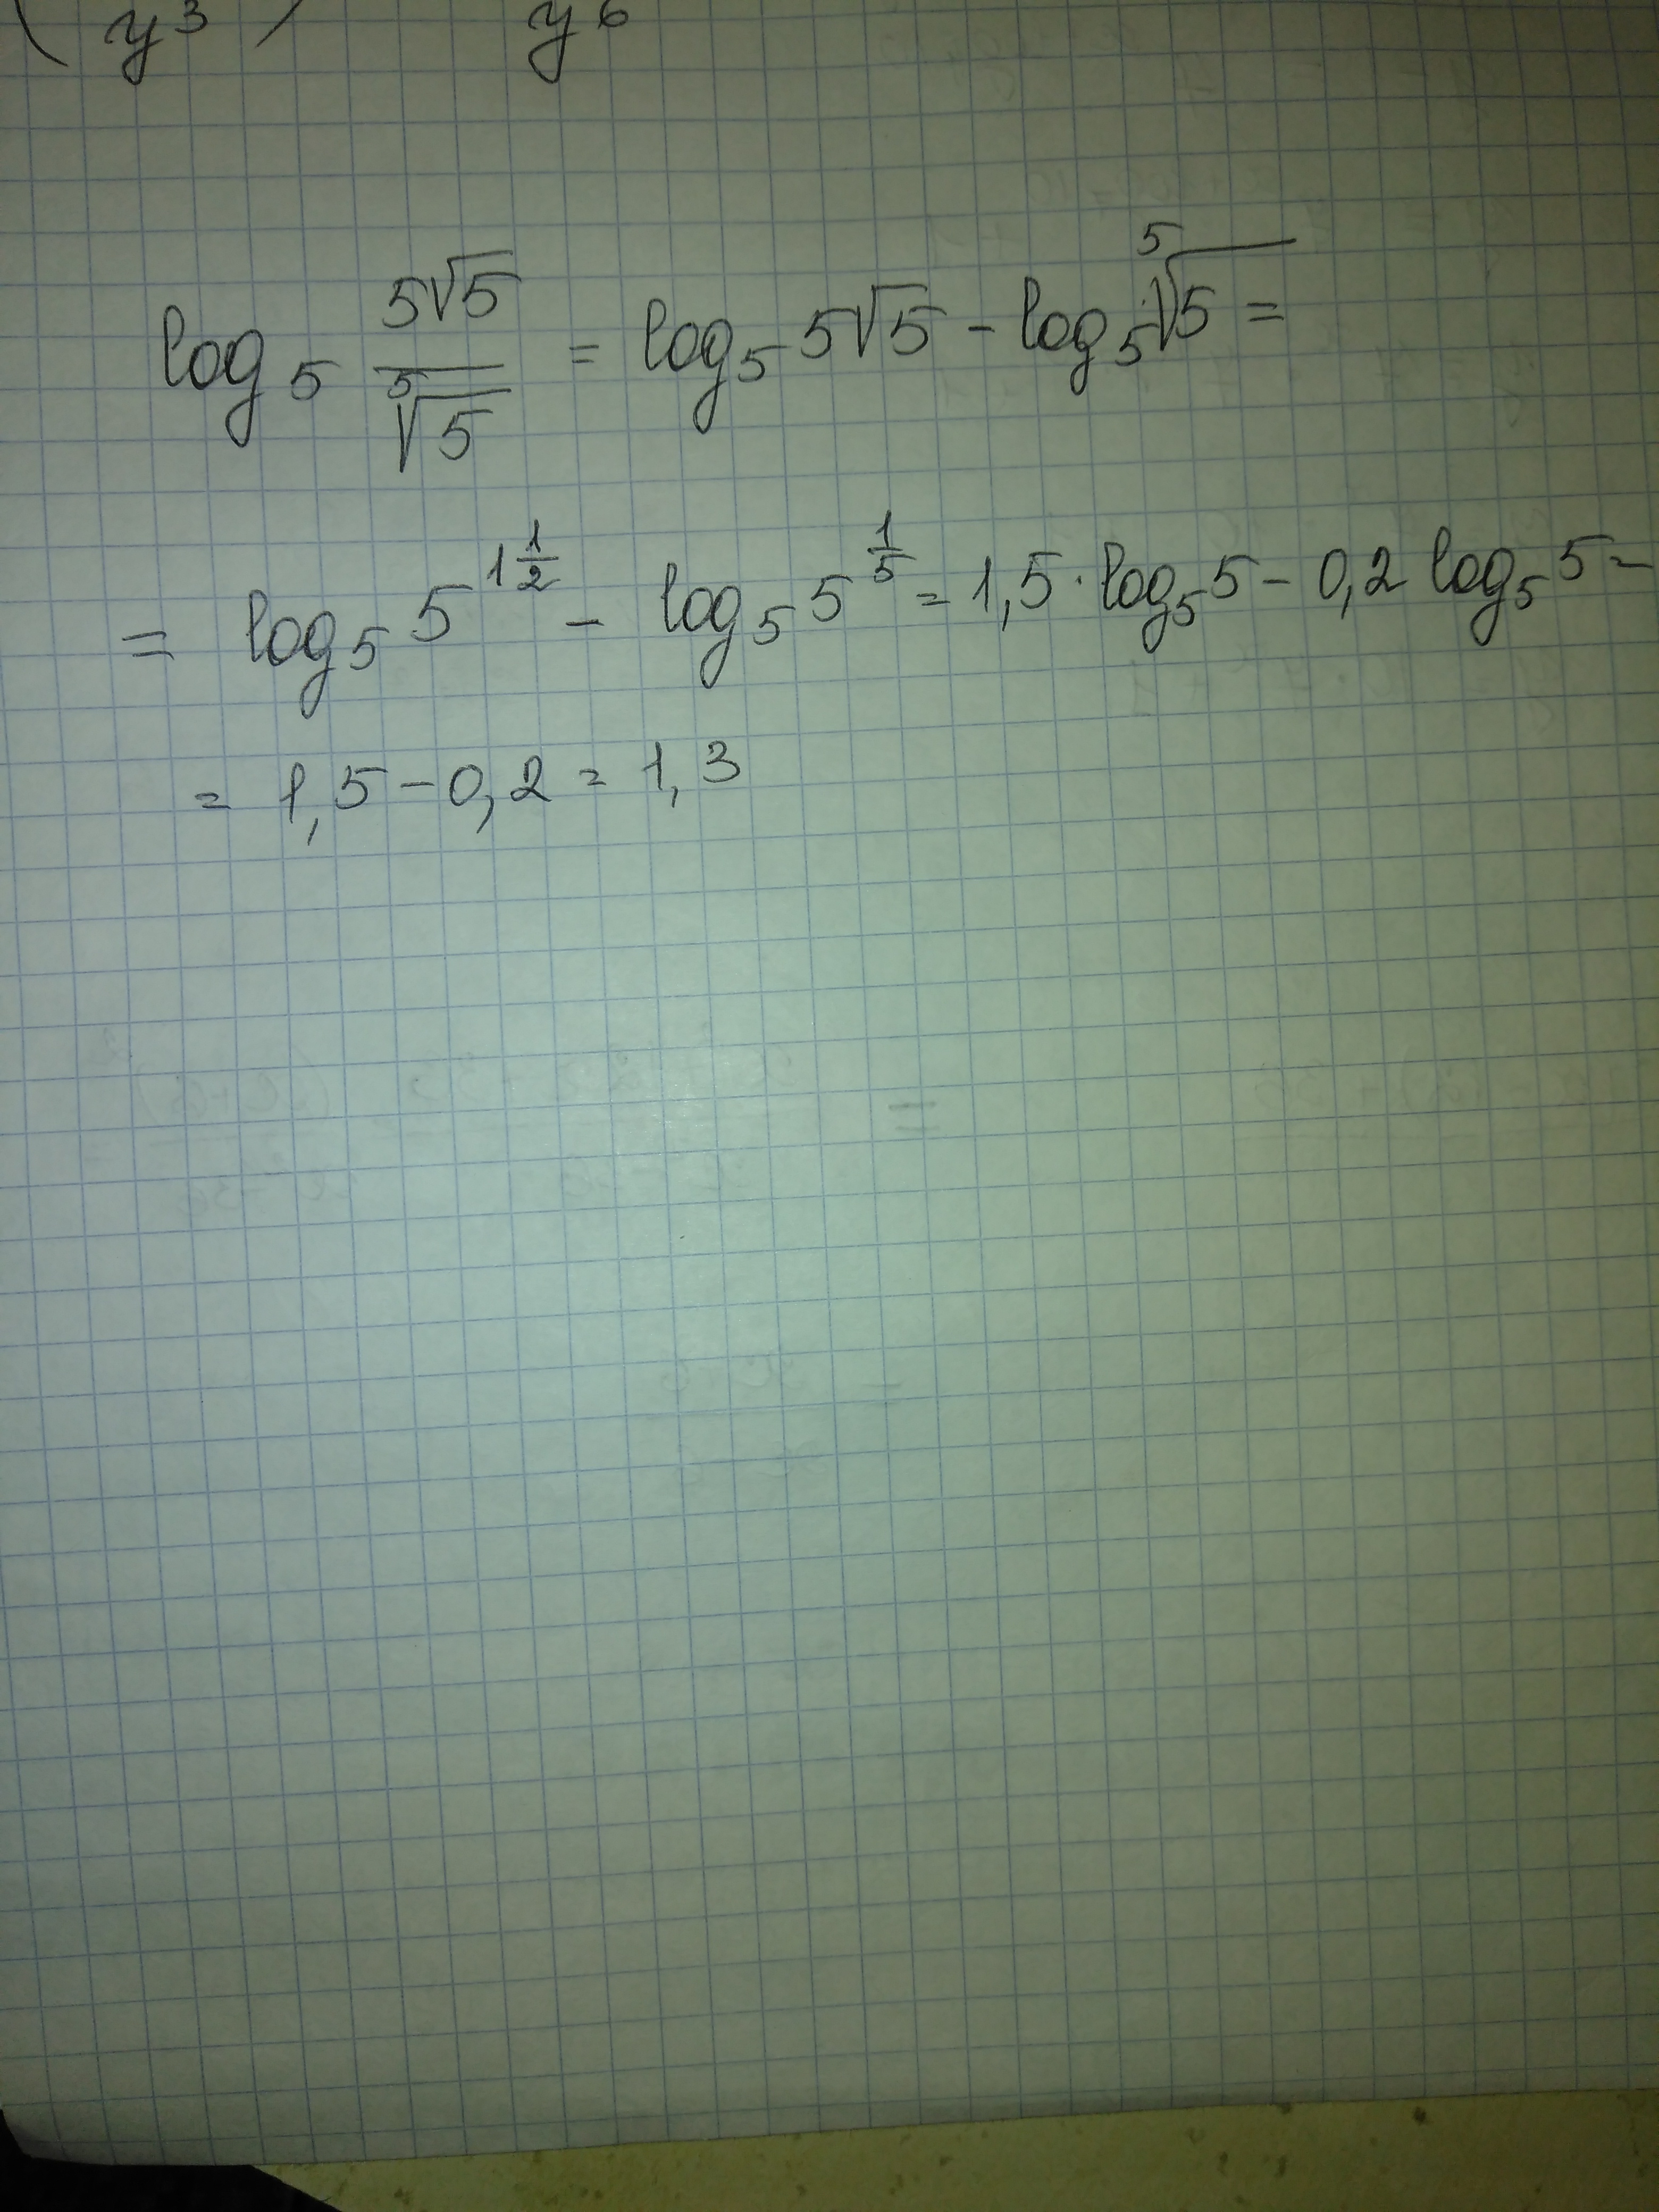 ( y³ ) y⁶
log₅ 5√5 / ⁵√5 = log₅ 5√5 - log₅ ⁵√5 =
= log₅ 5^(1 1/2) - log₅ 5^(1/5) = 1,5 · log₅ 5 - 0,2 log₅ 5 =
= 1,5 - 0,2 = 1,3